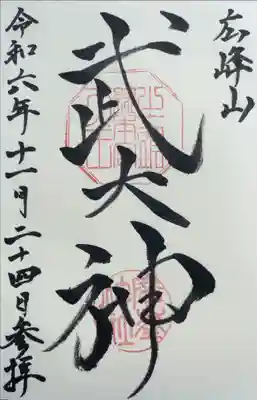 広峰山
武大神
令和六年十一月二十四日参拝